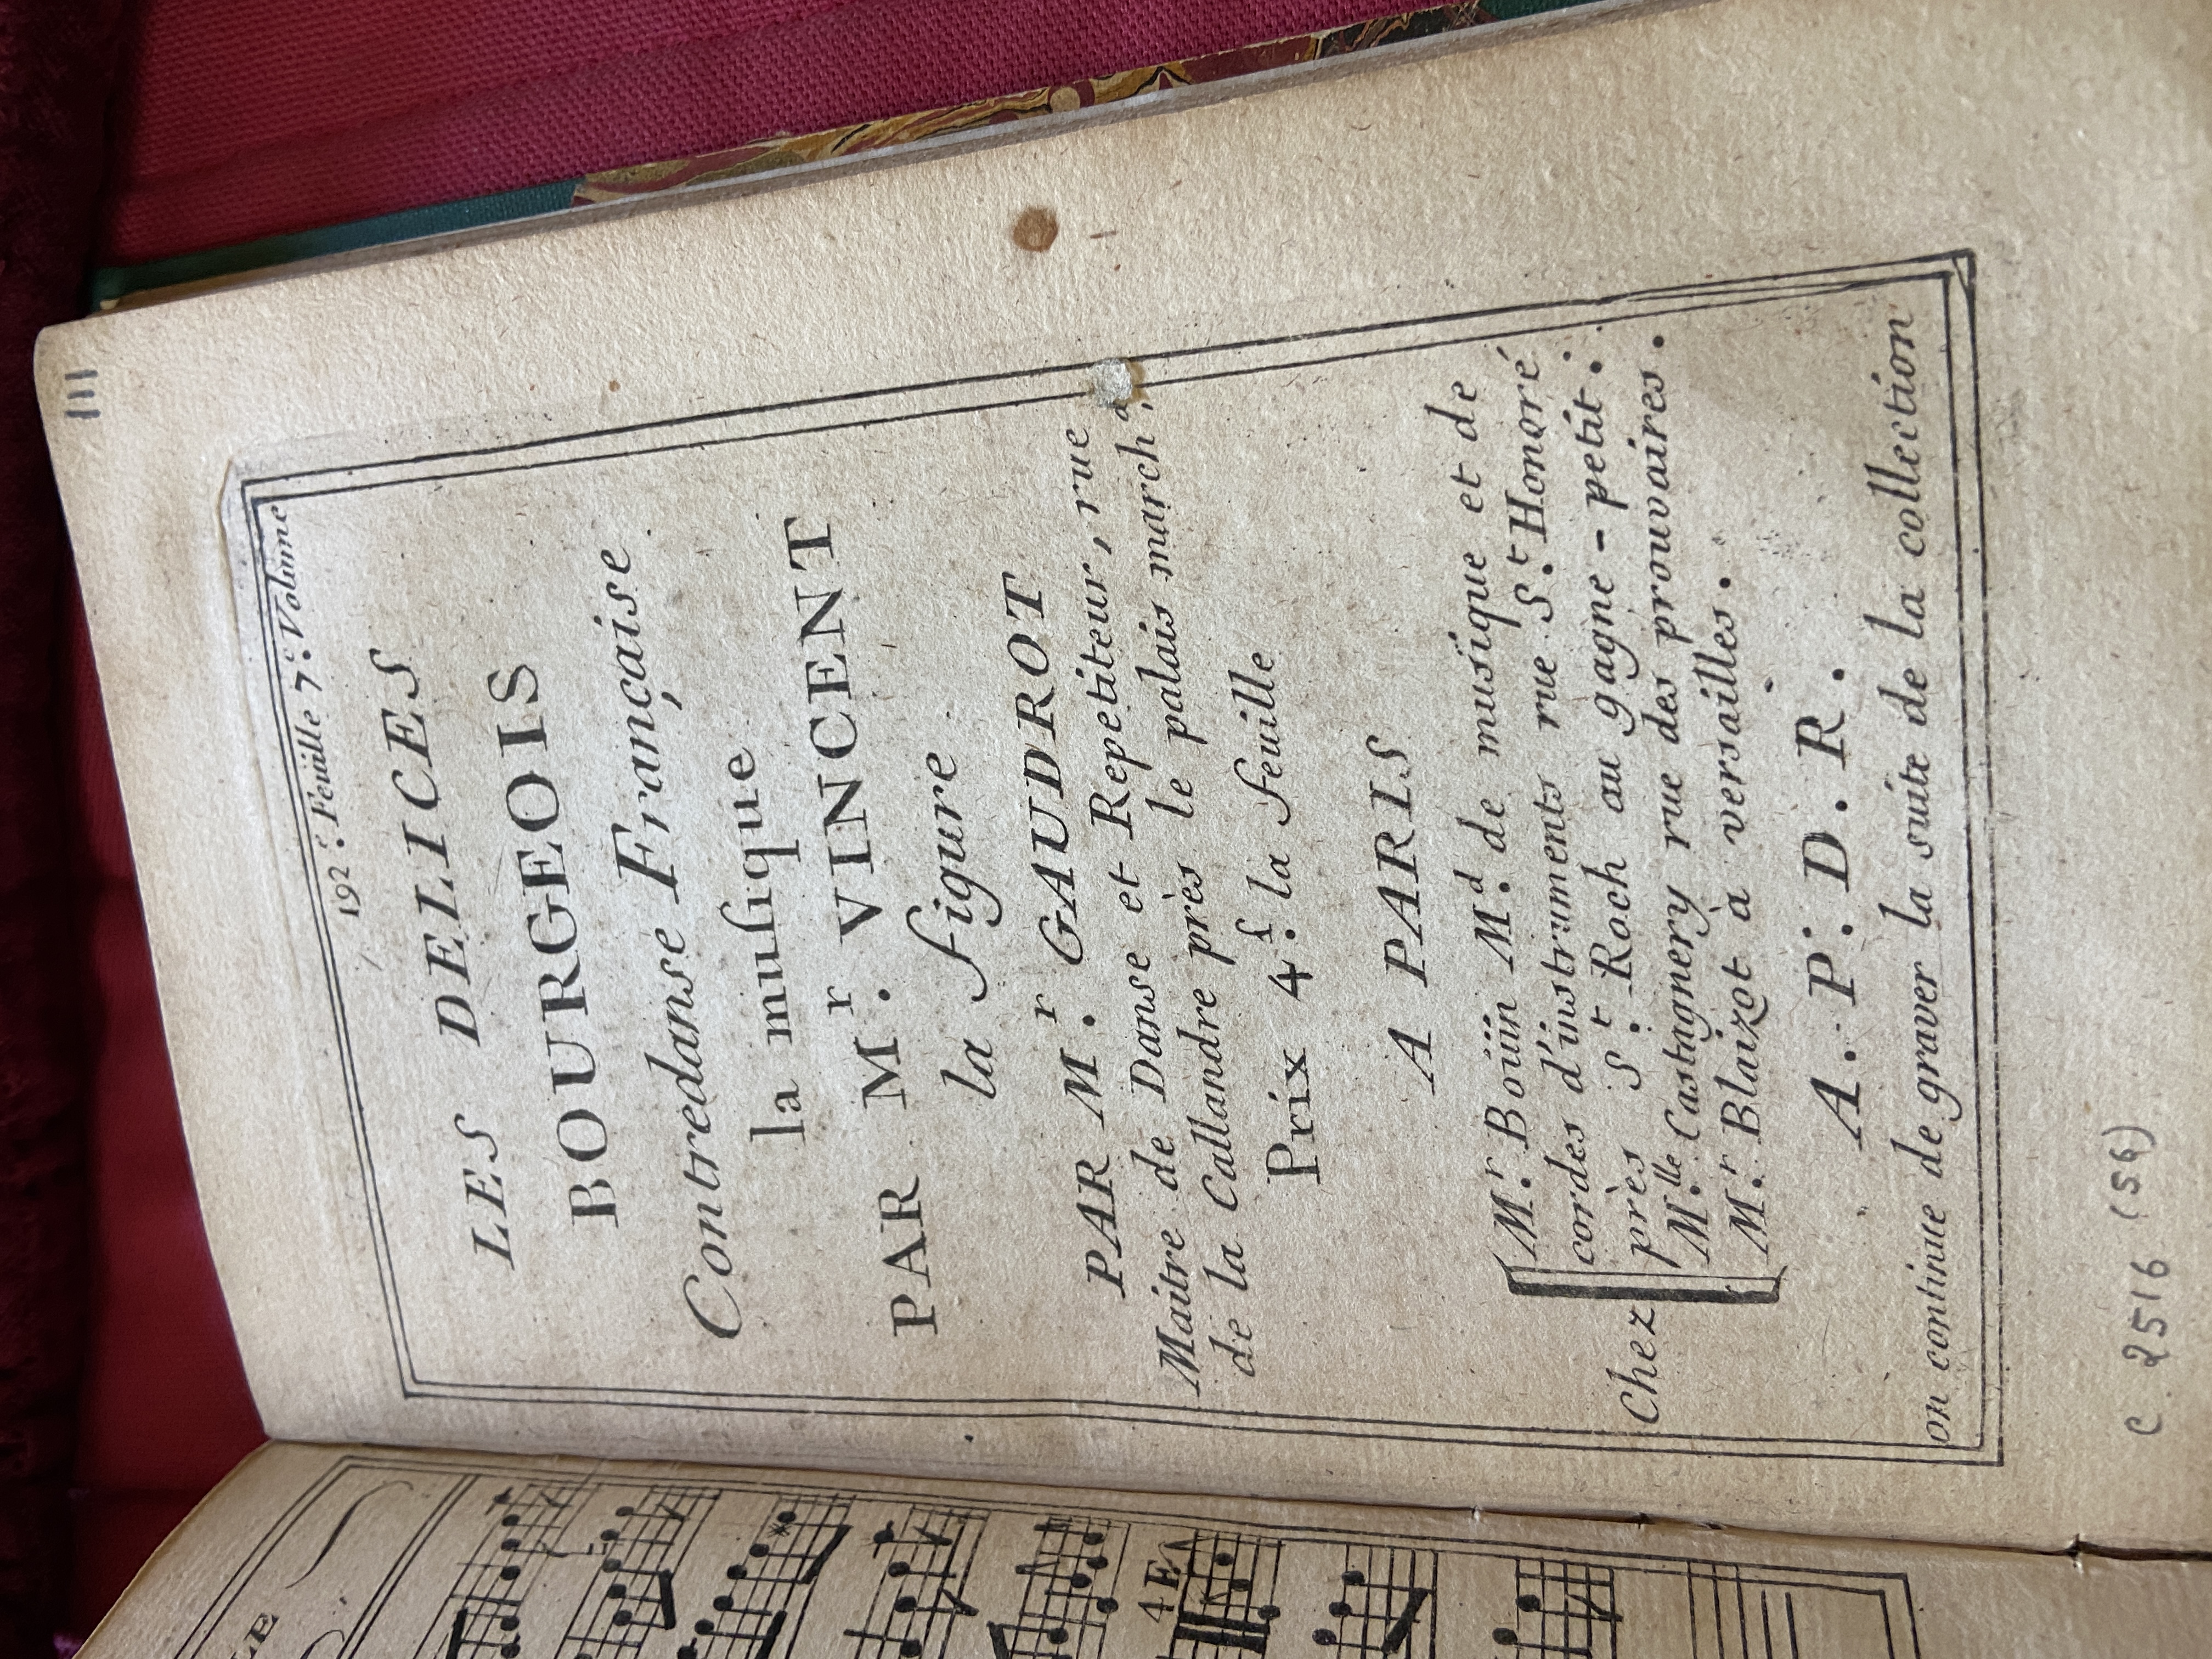 111
192.e Feuille 7.e Volume
LES DELICES
BOURGEOIS
Contredanse Française
la musique
PAR M.r VINCENT
la figure
PAR M.r GAUDROT
Maitre de Danse et Repetiteur, rue
de la Callandre près le palais march.d
Prix 4.f la feuille
A PARIS
M.r Boüin M.d de musique et de
cordes d'instruments rue S.t Honoré
près S.t Roch au gagne-petit.
Chez
M.lle Castagnery rue des prouvaires.
M.r Blaizot à versailles.
A. P. D. R.
on continue de graver la suite de la collection
C 2516 (56)
4E